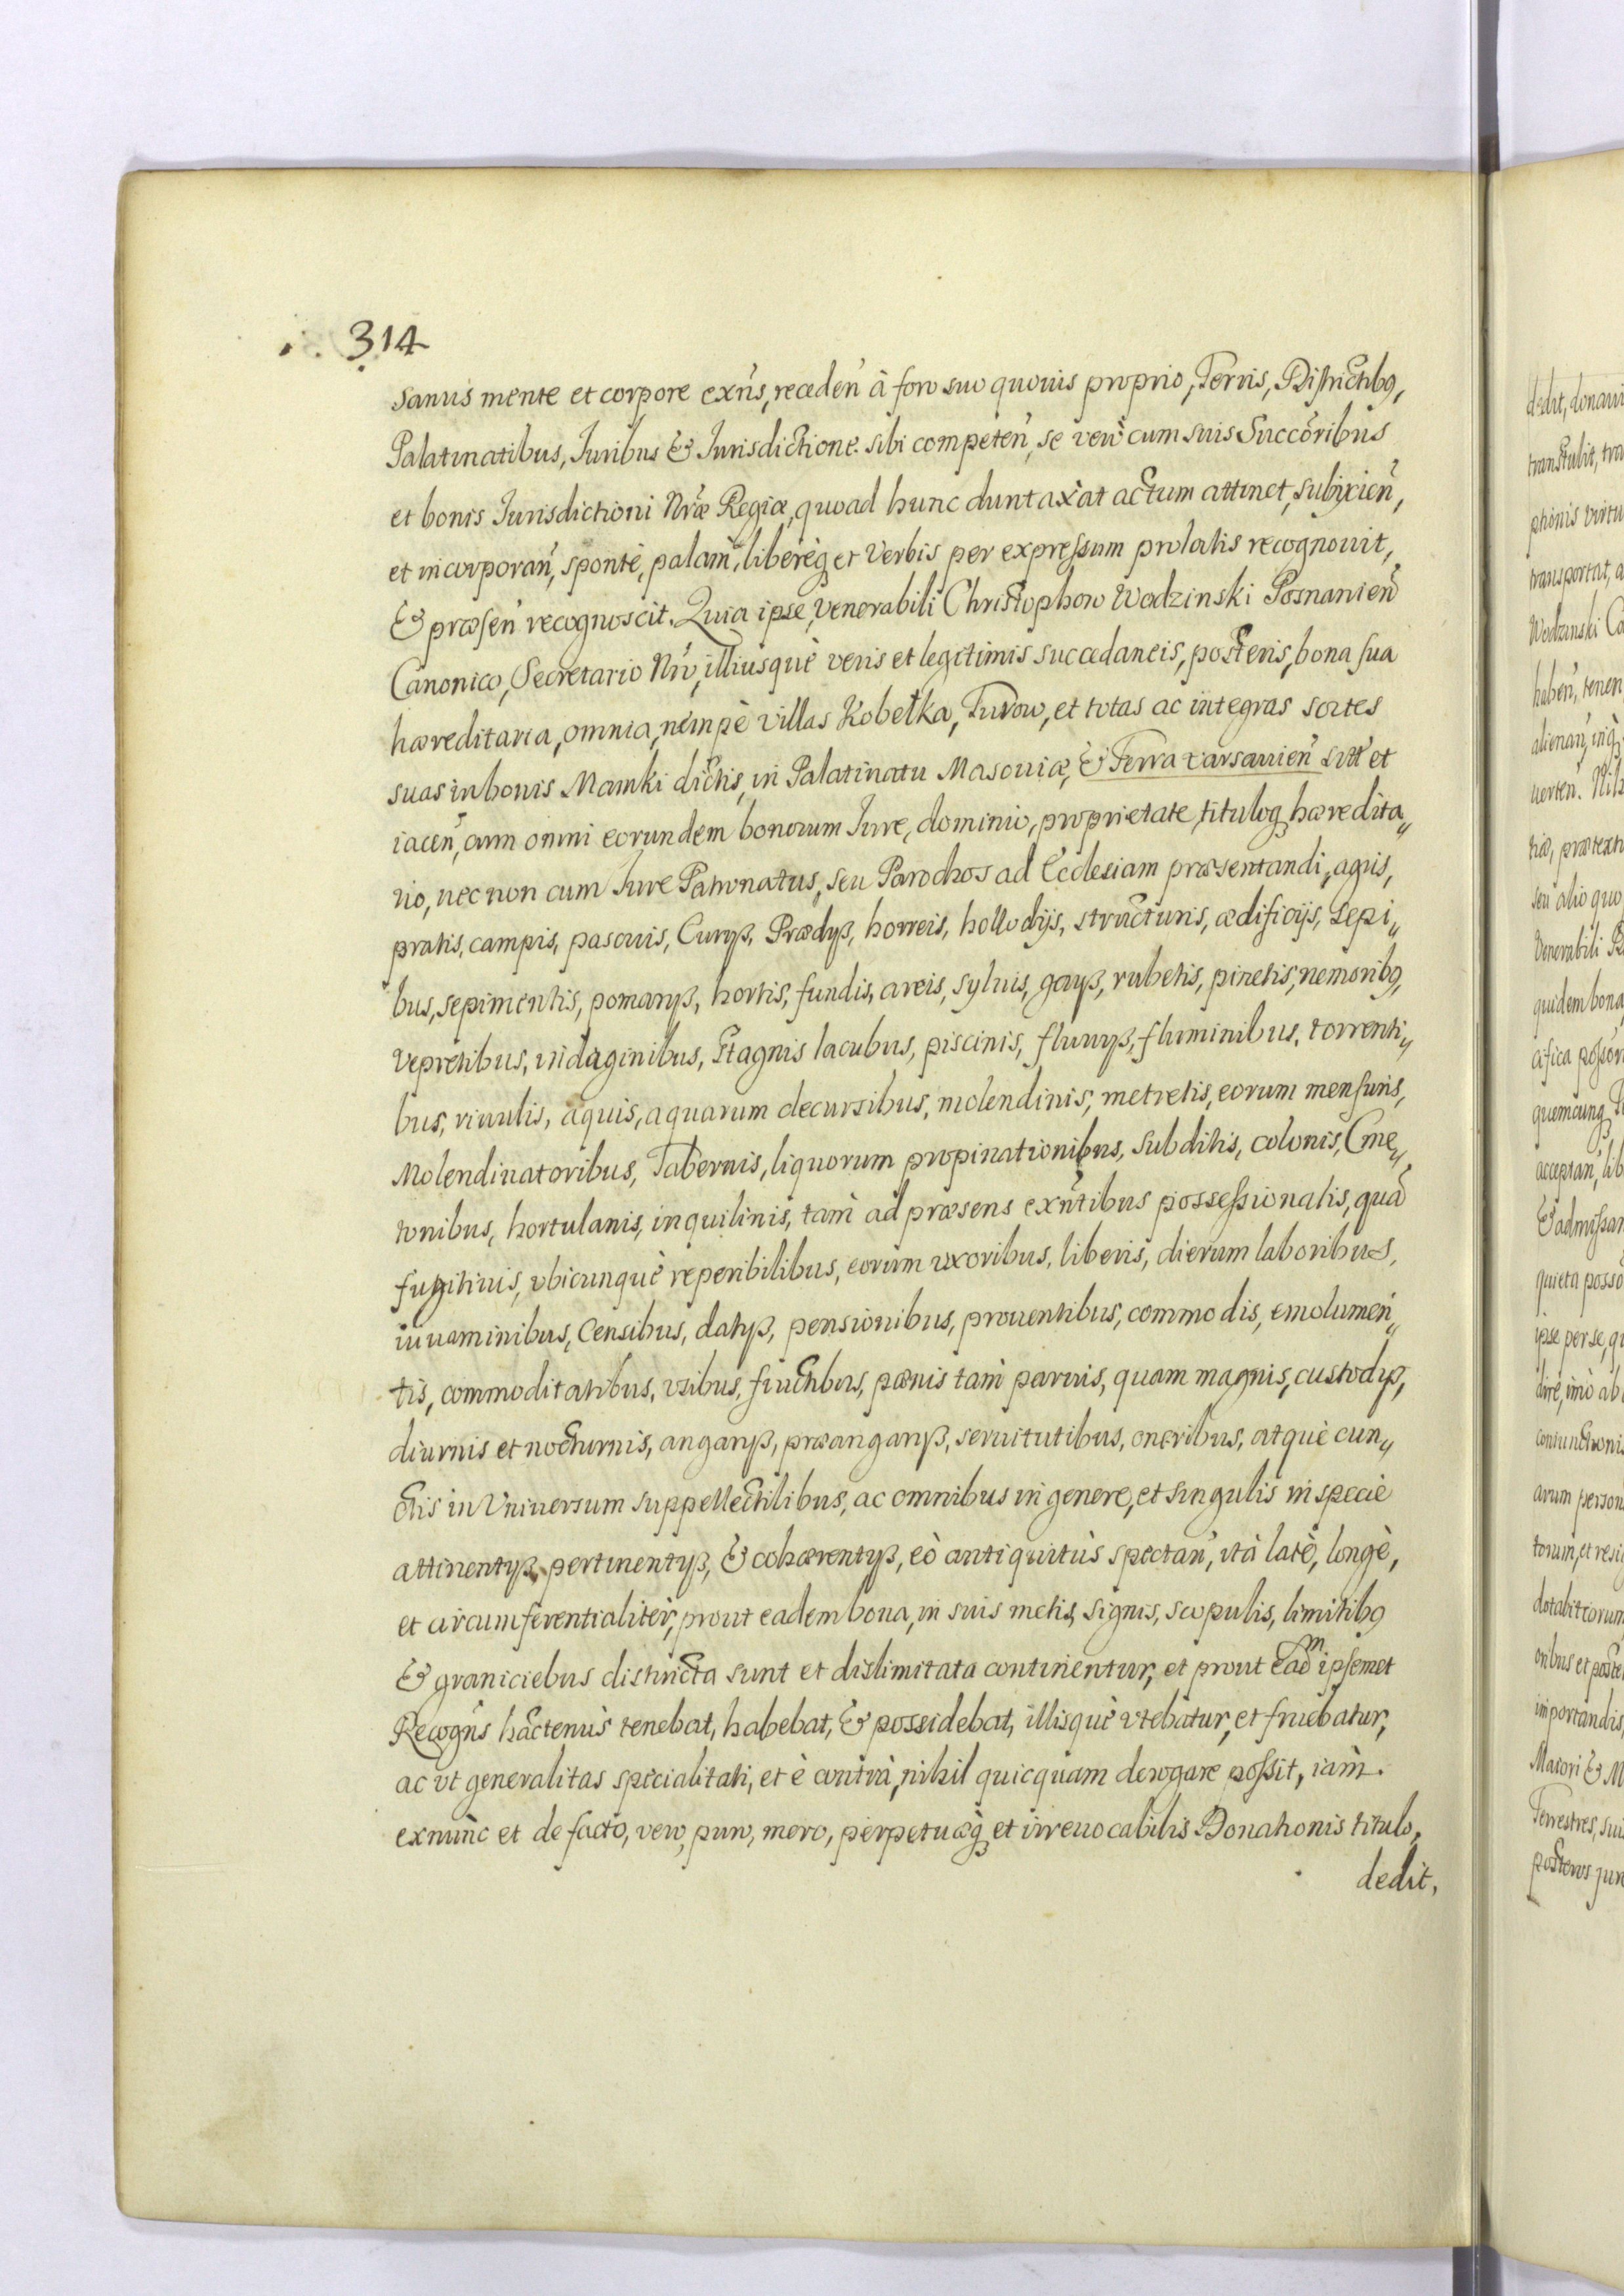 314
sanus mente et corpore exñs, receden̄ à foro suo quouis proprio, Terris, Districtibꝯ,
Palatinatibus, Iuribus & Iurisdictione sibi competen̄, se verò cum suis Succōribus
et bonis Iurisdictioni Nr̄æ Regiæ, quoad hunc duntaxàt actum attinet, subijcien̄,
et incorporan̄, spontè, palàm, liberèqꝫ et Verbis per expressum prolatis recognouit,
& præsen̄ recognoscit. Quia ipse, Venerabili Christophoro Wodzinski Posnanien̄
Canonico, Secretario Nr̄o, illiusquè veris et legitimis succedaneis, posteris, bona sua
hæreditaria, omnia, nempè villas Kobełka, Turow, et totas ac integras sortes
suas in bonis Mamki dictis, in Palatinatu Masouiæ, & Terra varsauien̄ sitt̄ et
iacen̄, cum omni eorundem bonorum Iure, dominio, proprietate, tituloqꝫ hæredita„
rio, nec non cum Iure Patronatus, seu Parochos ad Ecclesiam præsentandi, agris,
pratis, campis, pascuis, Curijs, Prædijs, horreis, hollodijs, structuris, ædificijs, sepi„
bus, sepimentis, pomarijs, hortis, fundis, areis, syluis, gaijs, rubetis, pinetis, nemoribꝯ,
vepretibus, indaginibus, Stagnis lacubus, piscinis, fluuijs, fluminibus, torrenti„
bus, riuulis, aquis, aquarum decursibus, molendinis, metretis, eorum mensuris,
Molendinatoribus, Tabernis, liquorum propinationibus, subditis, colonis, Cme„
tonibus, hortulanis, inquilinis, tàm ad præsens exñtibus possessionatis, quā
fugitiuis, vbicunquè reperibilibus, eorum uxoribus, liberis, dierum laboribus,
iuuaminibus, Censibus, datijs, pensionibus, prouentibus, commodis, emolumen„
tis, commoditatibus, vsibus, fructibus, pænis tàm paruis, quam magnis, custodijs,
diurnis et nocturnis, angarijs, præangarijs, seruitutibus, oneribus, atquè cun„
ctis in Vniuersum suppellectilibus, ac omnibus in genere, et singulis in specie
attinentijs, pertinentijs, & cohærentijs, eò antiquitùs spectan̄, ità latè, longè,
et circumferentialitèr, prout eadem bona, in suis metis, signis, scopulis, limitibꝯ
& graniciebus distincta sunt et dislimitata continentur, et prout eadē ipsemet
Recogñs hactenùs tenebat, habebat, & possidebat, illisquè vtebatur, et fruebatur,
ac vt generalitas specialitati, et è contrà, nihil quicquam derogare possit, iàm
exnùnc et de facto, vero, puro, mero, perpetuæqꝫ et irreuocabilis Donationis titulo,
dedit,